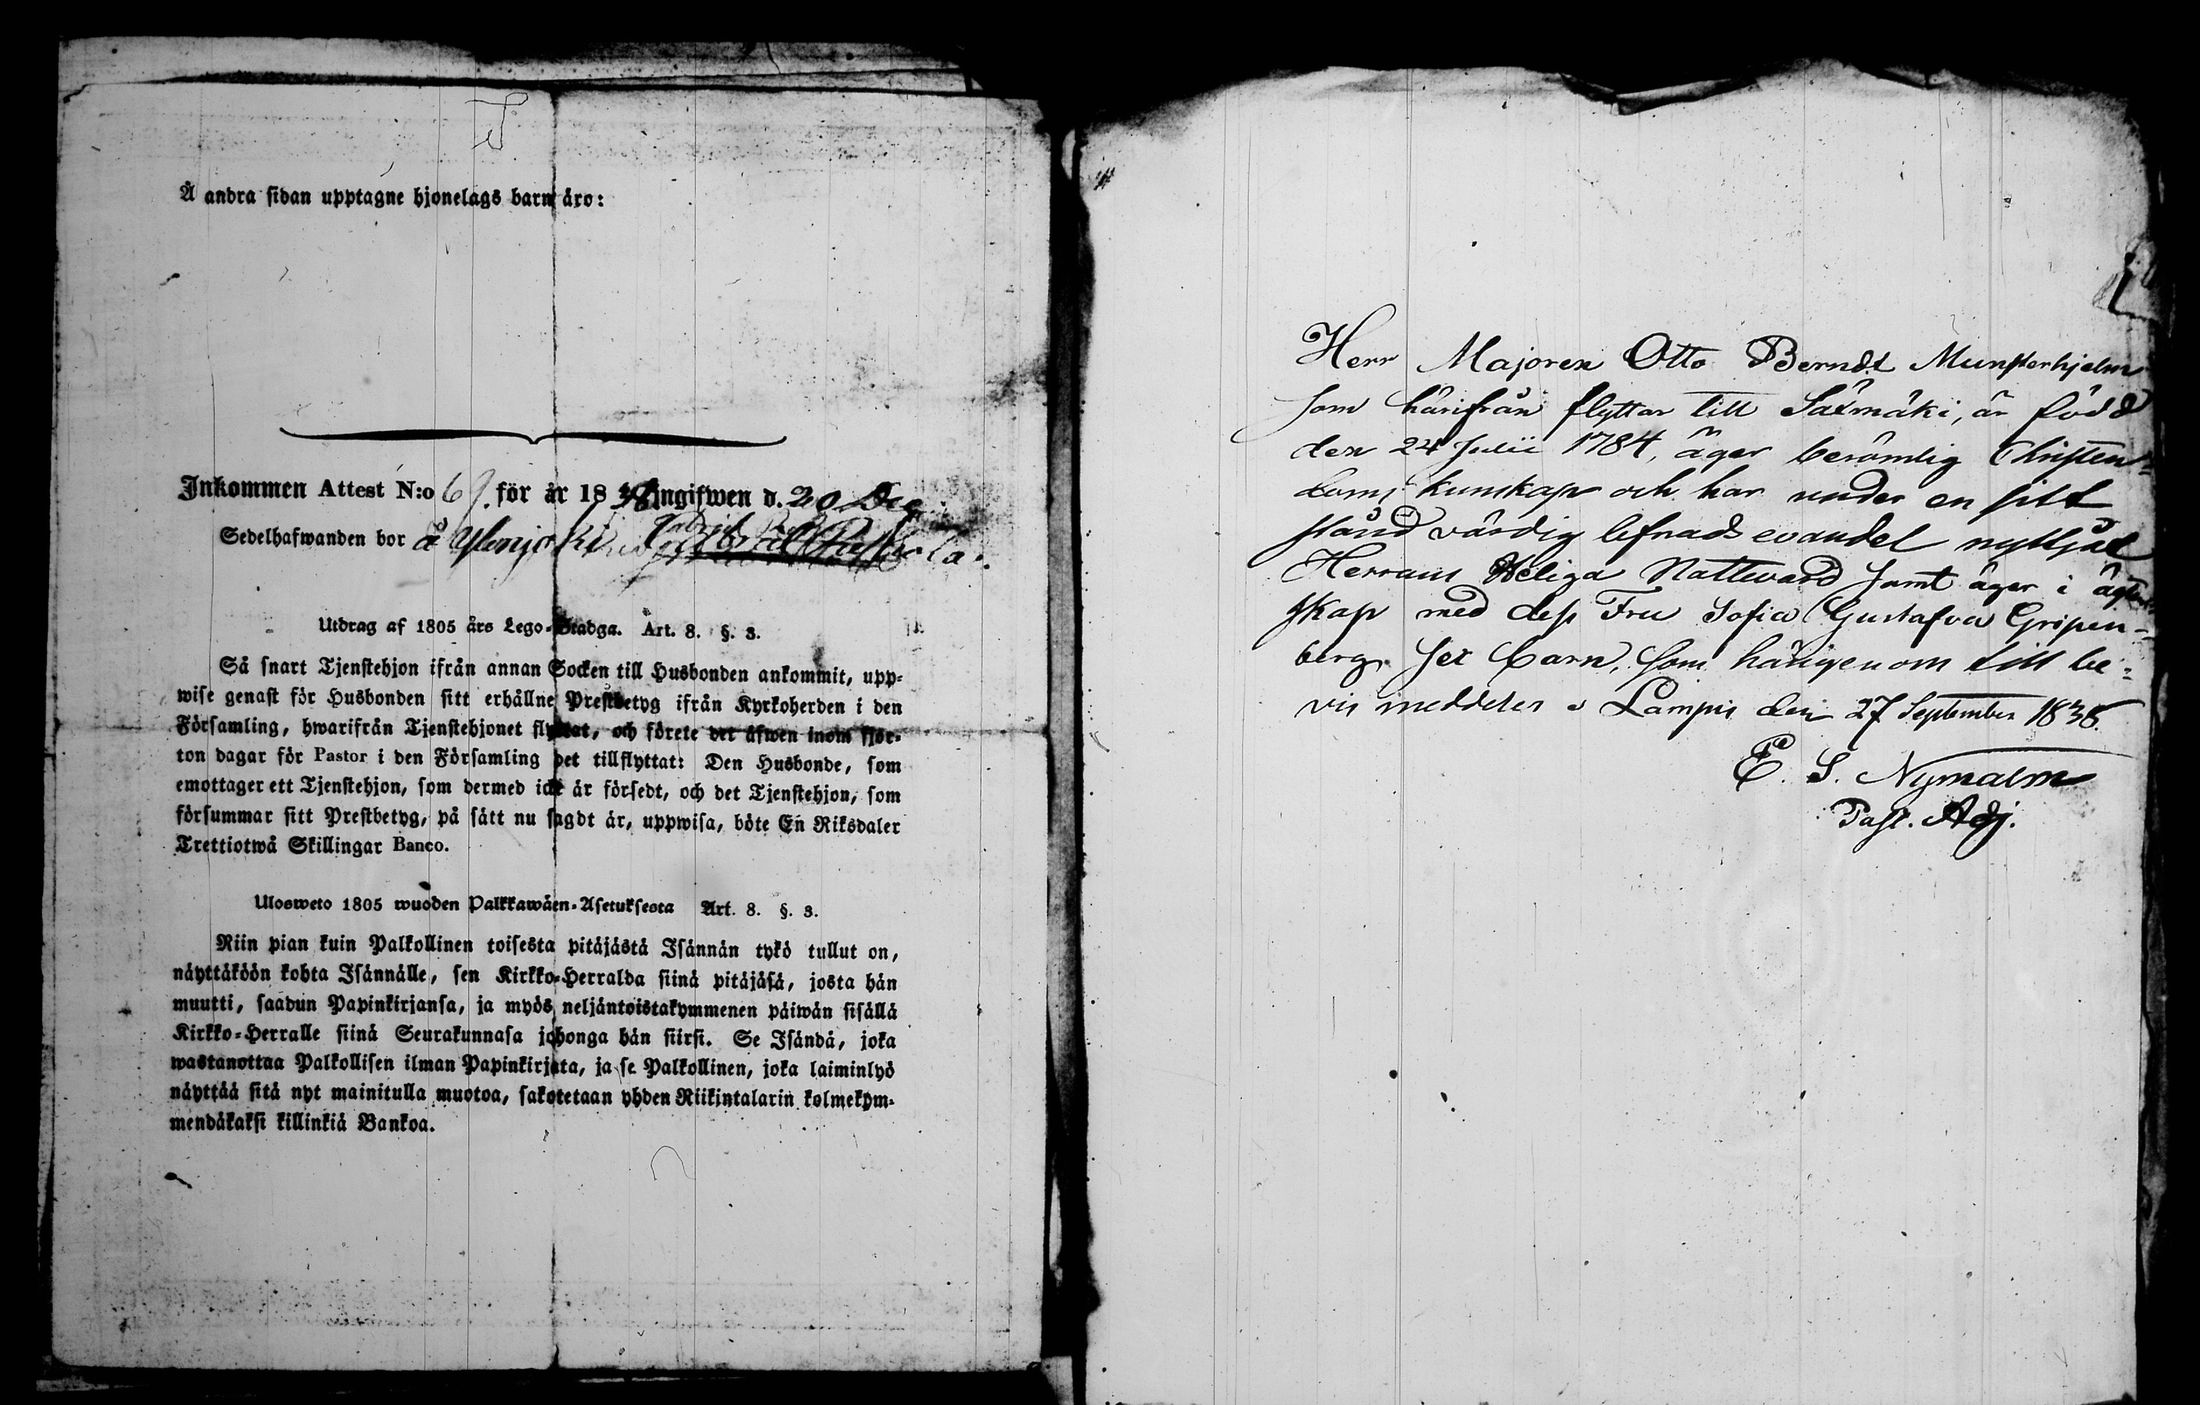 Å andra sidan upptagne hjonelags barn äro:
Inkommen Attest N:o 69. för år 1838 ingifwen d. 20 Dec.
Sedelhafwanden bor å Ylenjoki
Utdrag af 1805 års Lego-Stadga. Art. 8. §. 3.
Så snart Tjenstehjon ifrån annan Socken till Husbonden ankommit, upp-
wise genast för Husbonden sitt erhållne Prestbetyg ifrån Kyrkoherden i den
Församling, hwarifrån Tjenstehjonet flyttat, och förete det äfwen inom fjor-
ton dagar för Pastor i den Församling det tillflyttat: Den Husbonde, som
emottager ett Tjenstehjon, som dermed icke är försedt, och det Tjenstehjon, som
försummar sitt Prestbetyg, på sätt nu sagdt är, uppwisa, böte En Riksdaler
Trettiotwå Skillingar Banco.
Ulosweto 1805 wuoden Palkkawäen-Asetuksesta Art. 8. §. 3.
Niin pian kuin Palkollinen toisesta pitäjästä Isännän tykö tullut on,
näyttäköön kohta Isännälle, sen Kirkko-Herralda siinä pitäjäsä, josta hän
muutti, saadun Papinkirjansa, ja myös neljäntoistakymmenen päiwän sisällä
Kirkko-Herralle siinä Seurakunnasa johonga hän siirsi. Se Isändä, joka
wastanottaa Palkollisen ilman Papinkirjata, ja se Palkollinen, joka laiminlyö
näyttää sitä nyt mainitulla muotoa, sakotetaan yhden Riikintalarin kolmekym-
mendäkaksi killinkiä Bankoa.
Herr Majoren Otto Berndt Munsterhjelm
som härifrån flyttar till Saxmäki, är född
den 24 Julii 1784, äger berömlig Christen-
doms kunskap och har under en sitt
stånd värdig lefnadsvandel nyttjat
Herrans Heliga Nattvard samt äger i ägten-
skap med dess Fru Sofia Gustafva Gripen-
berg sex barn, som härigenom till be-
vis meddeles. Lampis den 27 September 1838.
E. S. Nymalm
Past. Adj.